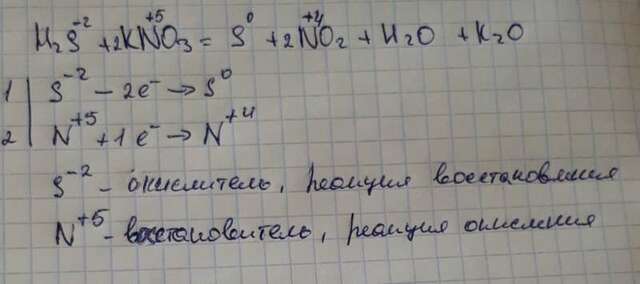 H₂S⁻² + 2KN⁺⁵O₃ = S⁰ + 2N⁺⁴O₂ + H₂O + K₂O
1 | S⁻² – 2e⁻ → S⁰
2 | N⁺⁵ + 1e⁻ → N⁺⁴
S⁻² – окислитель, реакция восстановления
N⁺⁵ – восстановитель, реакция окисления